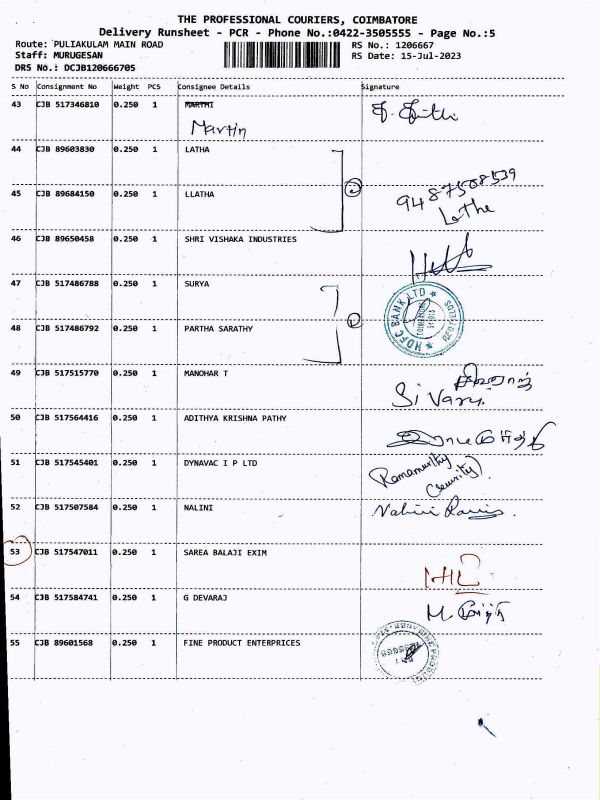 THE PROFESSIONAL COURIERS, COIMBATORE
Delivery Runsheet - PCR - Phone No.:0422-3505555 - Page No.:5
Route: PULIAKULAM MAIN ROAD RS No.: 1206667
Staff: MURUGESAN RS Date: 15-Jul-2023
DRS No.: DCJB120666705
S No Consignment No Weight PCS Consignee Details Signature
43 CJB 517346810 0.250 1 MARTHI
Martin
44 CJB 89603830 0.250 1 LATHA
45 CJB 89684150 0.250 1 LLATHA 9487508539
Latha
46 CJB 89650458 0.250 1 SHRI VISHAKA INDUSTRIES
47 CJB 517486788 0.250 1 SURYA
HDFC BANK LTD
48 CJB 517486792 0.250 1 PARTHA SARATHY
49 CJB 517515770 0.250 1 MANOHAR T
50 CJB 517564416 0.250 1 ADITHYA KRISHNA PATHY
51 CJB 517545401 0.250 1 DYNAVAC I P LTD Ramamurthy
(Security)
52 CJB 517507584 0.250 1 NALINI Nalini
53 CJB 517547011 0.250 1 SAREA BALAJI EXIM
54 CJB 517584741 0.250 1 G DEVARAJ
55 CJB 89601568 0.250 1 FINE PRODUCT ENTERPRICES